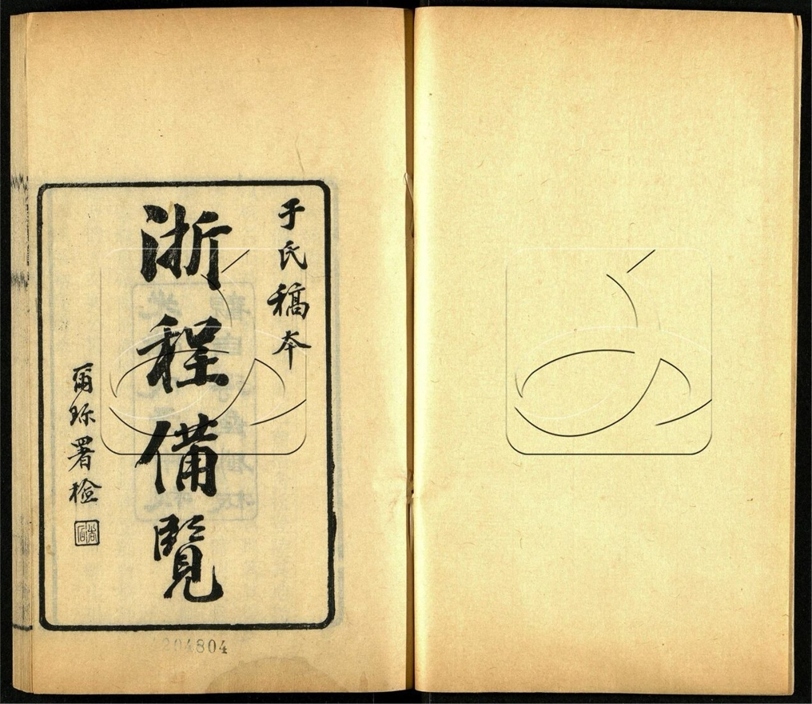 于氏稿本
浙程備覽
爾珎署檢
204804